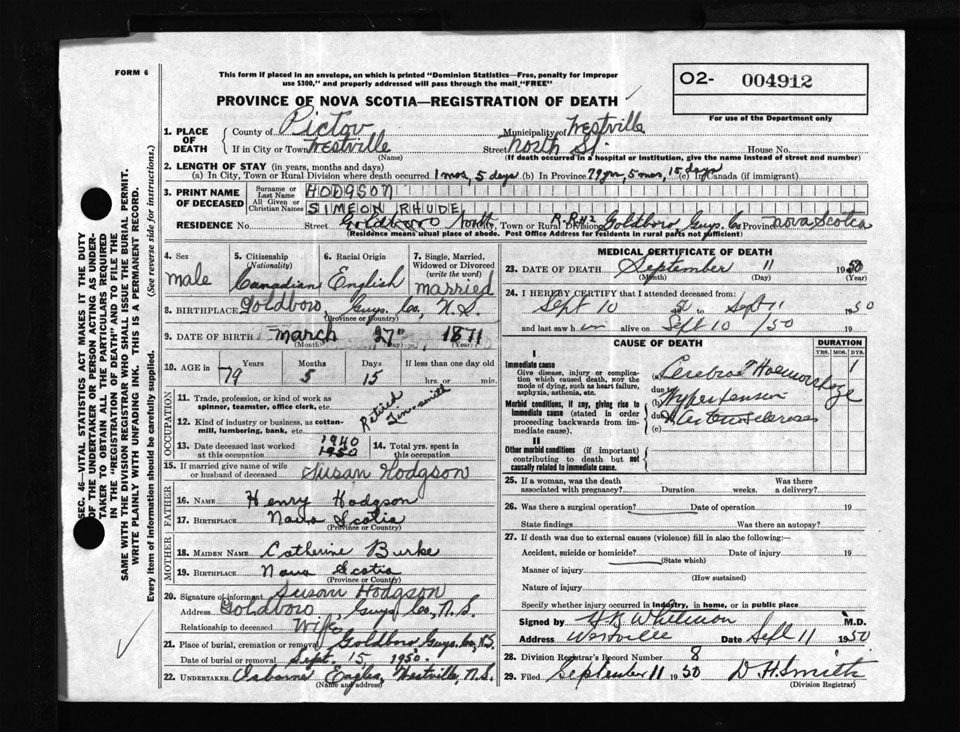 FORM 6
This form if placed in an envelope, on which is printed "Dominion Statistics—Free, penalty for improper
use $300," and properly addressed will pass through the mail "FREE"
O2- 004912
For use of the Department only
PROVINCE OF NOVA SCOTIA—REGISTRATION OF DEATH
1. PLACE OF DEATH
County of Pictou Municipality of Westville
If in City or Town Westville Street North St. House No.
(Name) (If death occurred in a hospital or institution, give the name instead of street and number)
2. LENGTH OF STAY (in years, months and days)
(a) In City, Town or Rural Division where death occurred 1 mos, 5 days (b) In Province 79 yrs, 5 mos, 15 days (c) In Canada (if immigrant)
3. PRINT NAME OF DECEASED
Surname or Last Name HODGSON
All Given or Christian Names SIMEON RHUDE
RESIDENCE No. Street Goldboro North City, Town or Rural Division R.R.#2 Goldboro Guys. Co Province Nova Scotia
(Residence means usual place of abode. Post Office Address for residents in rural parts not sufficient)
4. Sex
male
5. Citizenship
(Nationality)
Canadian
6. Racial Origin
English
7. Single, Married, Widowed or Divorced
(write the word)
married
8. BIRTHPLACE Goldboro, Guys. Co., N.S.
(Province or Country)
9. DATE OF BIRTH March 27" 1871
(Month) (Day) (Year)
10. AGE in Years Months Days If less than one day old
79 5 15 hrs. or min.
OCCUPATION
11. Trade, profession or kind of work as
spinner, teamster, office clerk, etc.
Retired
12. Kind of industry or business, as cotton-
mill, lumbering, bank, etc.
13. Date deceased last worked
at this occupation
1940
1950
14. Total yrs. spent in
this occupation
15. If married give name of wife
or husband of deceased Susan Hodgson
FATHER
16. NAME Henry Hodgson
17. BIRTHPLACE Nova Scotia
(Province or Country)
MOTHER
18. MAIDEN NAME Catherine Burke
19. BIRTHPLACE Nova Scotia
(Province or Country)
20. Signature of informant Susan Hodgson
Address Goldboro, Guys. Co., N.S.
Relationship to deceased Wife
21. Place of burial, cremation or removal Goldboro, Guys. Co., N.S.
Date of burial or removal Sept. 15, 1950.
22. UNDERTAKER Osborne Eagles, Westville, N.S.
(Name and address)
MEDICAL CERTIFICATE OF DEATH
23. DATE OF DEATH September 11 1950
(Month) (Day) (Year)
24. I HEREBY CERTIFY that I attended deceased from:
Sept 10 to Sept 11 1950
and last saw him alive on Sept 10/50 19
CAUSE OF DEATH
DURATION
YRS. MOS. DYS.
I
Immediate cause
Give disease, injury or complica-
tion which caused death, NOT the
mode of dying, such as heart failure,
asphyxia, asthenia, etc.
(a) Cerebral Haemorrhage 1
due to
Morbid conditions, if any, giving rise to
immediate cause (stated in order
proceeding backwards from im-
mediate cause).
(b) Hypertension
due to
(c)
II
Other morbid conditions (if important)
contributing to death but not
causally related to immediate cause.
25. If a woman, was the death
associated with pregnancy? Duration weeks. Was there
a delivery?
26. Was there a surgical operation? Date of operation 19
State findings Was there an autopsy?
27. If death was due to external causes (violence) fill in also the following:—
Accident, suicide or homicide? Date of injury 19
(State which)
Manner of injury
(How sustained)
Nature of injury
Specify whether injury occurred in industry, in home, or in public place
Signed by H B Whitman M.D.
Address Westville Date Sept 11 1950
28. Division Registrar's Record Number 8
29. Filed September 11 1950 D H Smith
(Division Registrar)
SEC. 46—VITAL STATISTICS ACT MAKES IT THE DUTY
OF THE UNDERTAKER OR PERSON ACTING AS UNDER-
TAKER TO OBTAIN ALL THE PARTICULARS REQUIRED
IN THE "REGISTRATION OF DEATH" AND TO FILE THE
SAME WITH THE DIVISION REGISTRAR WHO SHALL ISSUE THE BURIAL PERMIT.
WRITE PLAINLY WITH UNFADING INK. THIS IS A PERMANENT RECORD.
Every item of information should be carefully supplied. (See reverse side for instructions.)